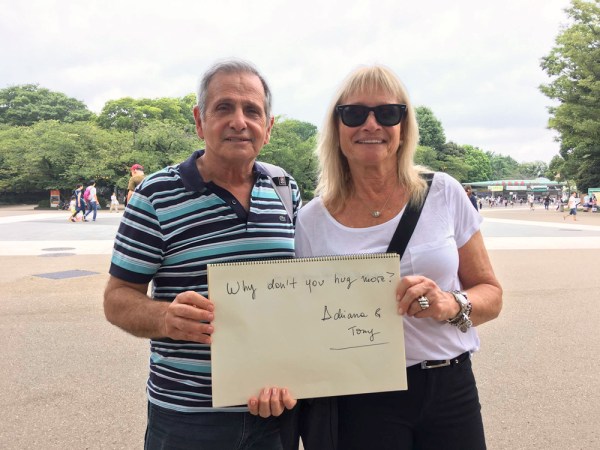 Why don't you hug more?
Adriana &
Tony